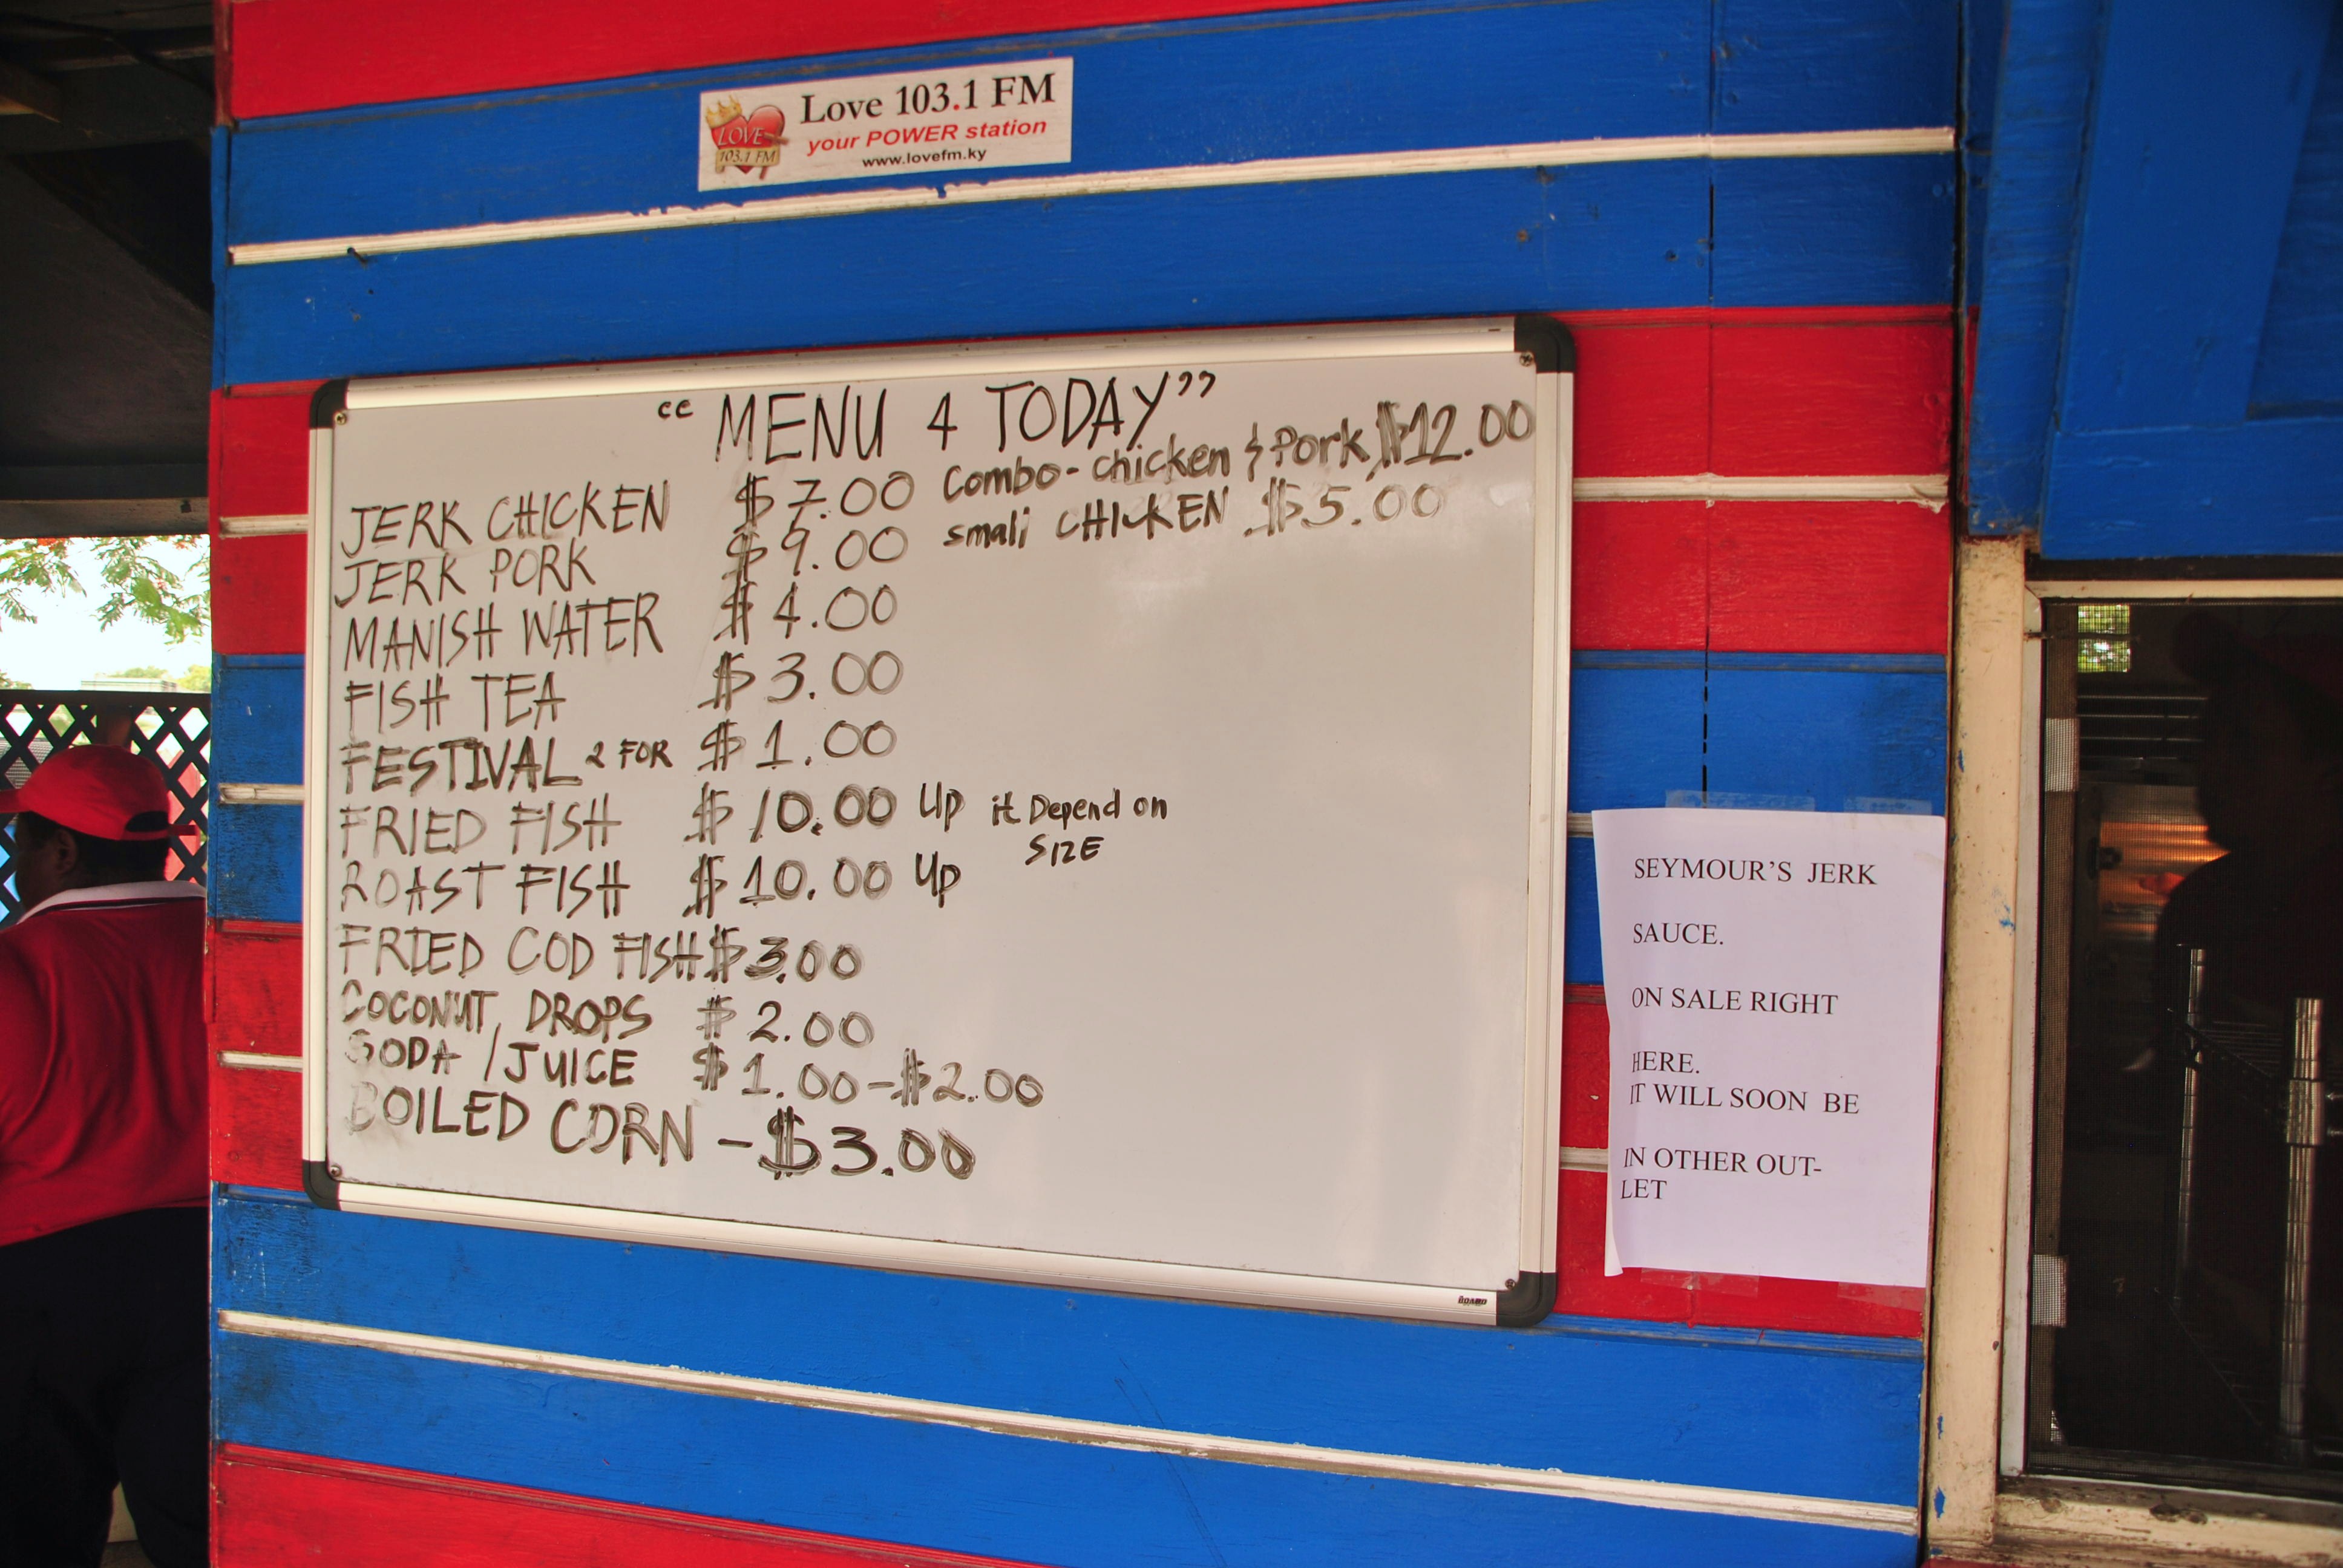 LOVE
103.1 FM
Love 103.1 FM
your POWER station
www.lovefm.ky
"MENU 4 TODAY"
JERK CHICKEN $7.00 Combo-chicken & Pork $12.00
JERK PORK $9.00 small CHICKEN $5.00
MANISH WATER $4.00
FISH TEA $3.00
FESTIVAL 2 FOR $1.00
FRIED FISH $10.00 Up it Depend on
SIZE
ROAST FISH $10.00 Up
FRIED COD FISH $3.00
COCONUT DROPS $2.00
SODA / JUICE $1.00-$2.00
BOILED CORN - $3.00
BOARD
SEYMOUR'S JERK
SAUCE.
ON SALE RIGHT
HERE.
IT WILL SOON BE
IN OTHER OUT-
LET